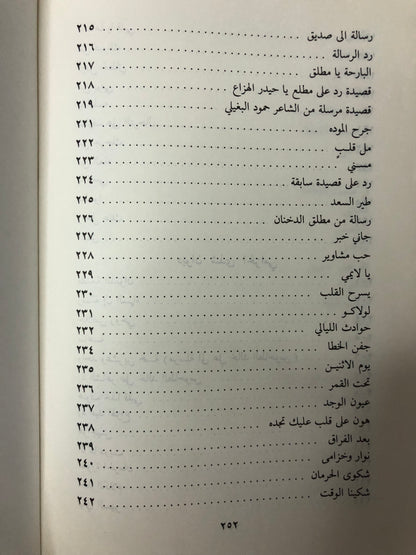 رسالة الى صديق ٢١٥
رد الرسالة ٢١٦
البارحة يا مطلق ٢١٧
قصيدة رد على مطلع يا حيدر الهزاع ٢١٨
قصيدة مرسلة من الشاعر حمود البغيلي ٢١٩
جرح الموده ٢٢١
مل قلبٍ ٢٢٢
مسني ٢٢٣
رد على قصيدة سابقة ٢٢٤
طير السعد ٢٢٥
رسالة من مطلق الدخنان ٢٢٦
جاني خبر ٢٢٧
حب مشاوير ٢٢٨
يا لايمي ٢٢٩
يسرح القلب ٢٣٠
لولاكو ٢٣١
حوادث الليالي ٢٣٢
جفن الخطا ٢٣٤
يوم الاثنين ٢٣٥
تحت القمر ٢٣٦
عيون الوجد ٢٣٧
هون على قلب عليك تجده ٢٣٨
بعد الفراق ٢٣٩
نوار وخزامى ٢٤٠
شكوى الحرمان ٢٤١
شكينا الوقت ٢٤٢
٢٥٢